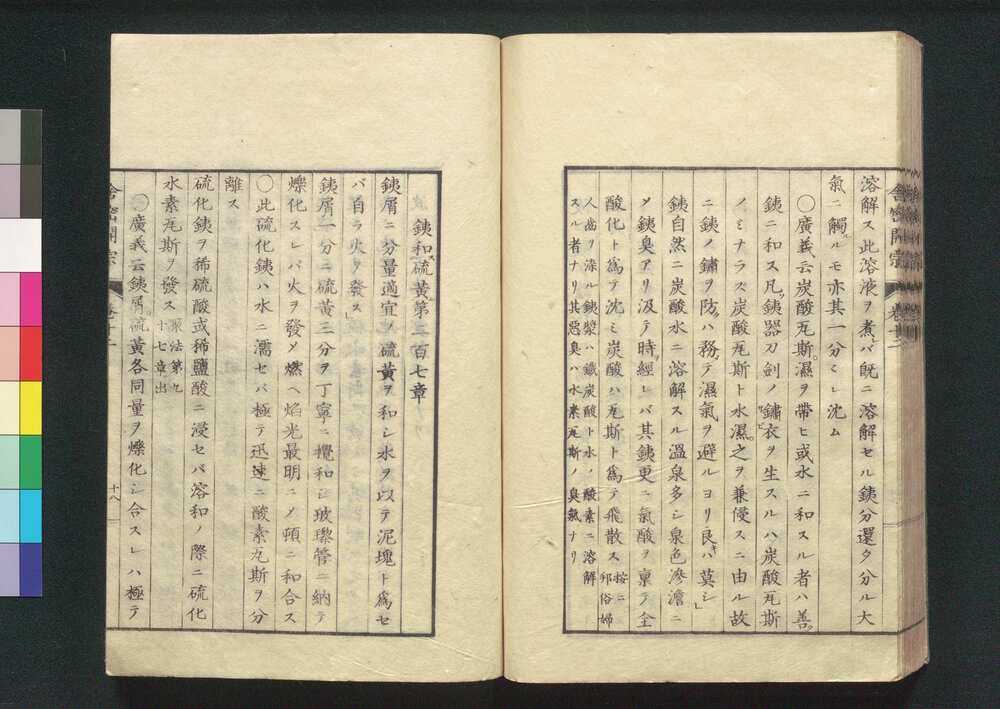 溶解ス此溶液ヲ煮バ既ニ溶解セル銕分還タ分ル大
氣ニ觸ルモ亦其一分ハシ沈ム
〇廣義云炭酸瓦斯濕ヲ帶ヒ或水ニ和スル者ハ善
銕ニ和ス凡銕器刀劍ノ鏽衣ヲ生スルハ炭酸瓦斯
ノミナラズ炭酸瓦斯ト水濕之ヲ兼侵スニ由ル故
ニ銕ノ鏽ヲ防ハ務テ濕氣ヲ避ルヨリ良キハ莫シ」
銕自然ニ炭酸水ニ溶解スル溫泉多シ泉色滲澹ニ
〆銕臭アリ汲テ時ヲ經レバ其銕更ニ氣酸ヲ稟テ全
酸化ト爲テ沈ミ炭酸ハ瓦斯ト爲テ飛散ス 按ニ邦俗婦
人齒ヲ涤ル銕漿ハ鐵炭酸ト水ノ酸素ニ溶解
スル者ナリ其惡臭ハ水素瓦斯ノ臭氣ナリ
舍密開宗
銕和硫黃第二百七章
銕屑ニ分量適宜ノ硫黃ヲ和シ水ヲ以テ泥塊ト爲セ
バ自ラ火ヲ發ス」
銕屑一分ニ硫黃三分ヲ丁寧ニ攪和シ玻瓈管ニ納テ
爍化スレバ火ヲ發〆燃ヘ焰光最明ニ〆頓ニ和合ス
〇此硫化銕ハ水ニ濡セバ極テ迅速ニ酸素瓦斯ヲ分
離ス
硫化銕ヲ稀硫酸或稀鹽酸ニ浸セバ溶和ノ際ニ硫化
水素瓦斯ヲ發ス 製法第九十七章出
〇廣義云銕屑硫黃各同量ヲ爍化シ合スレハ極テ
舍密開宗
十八